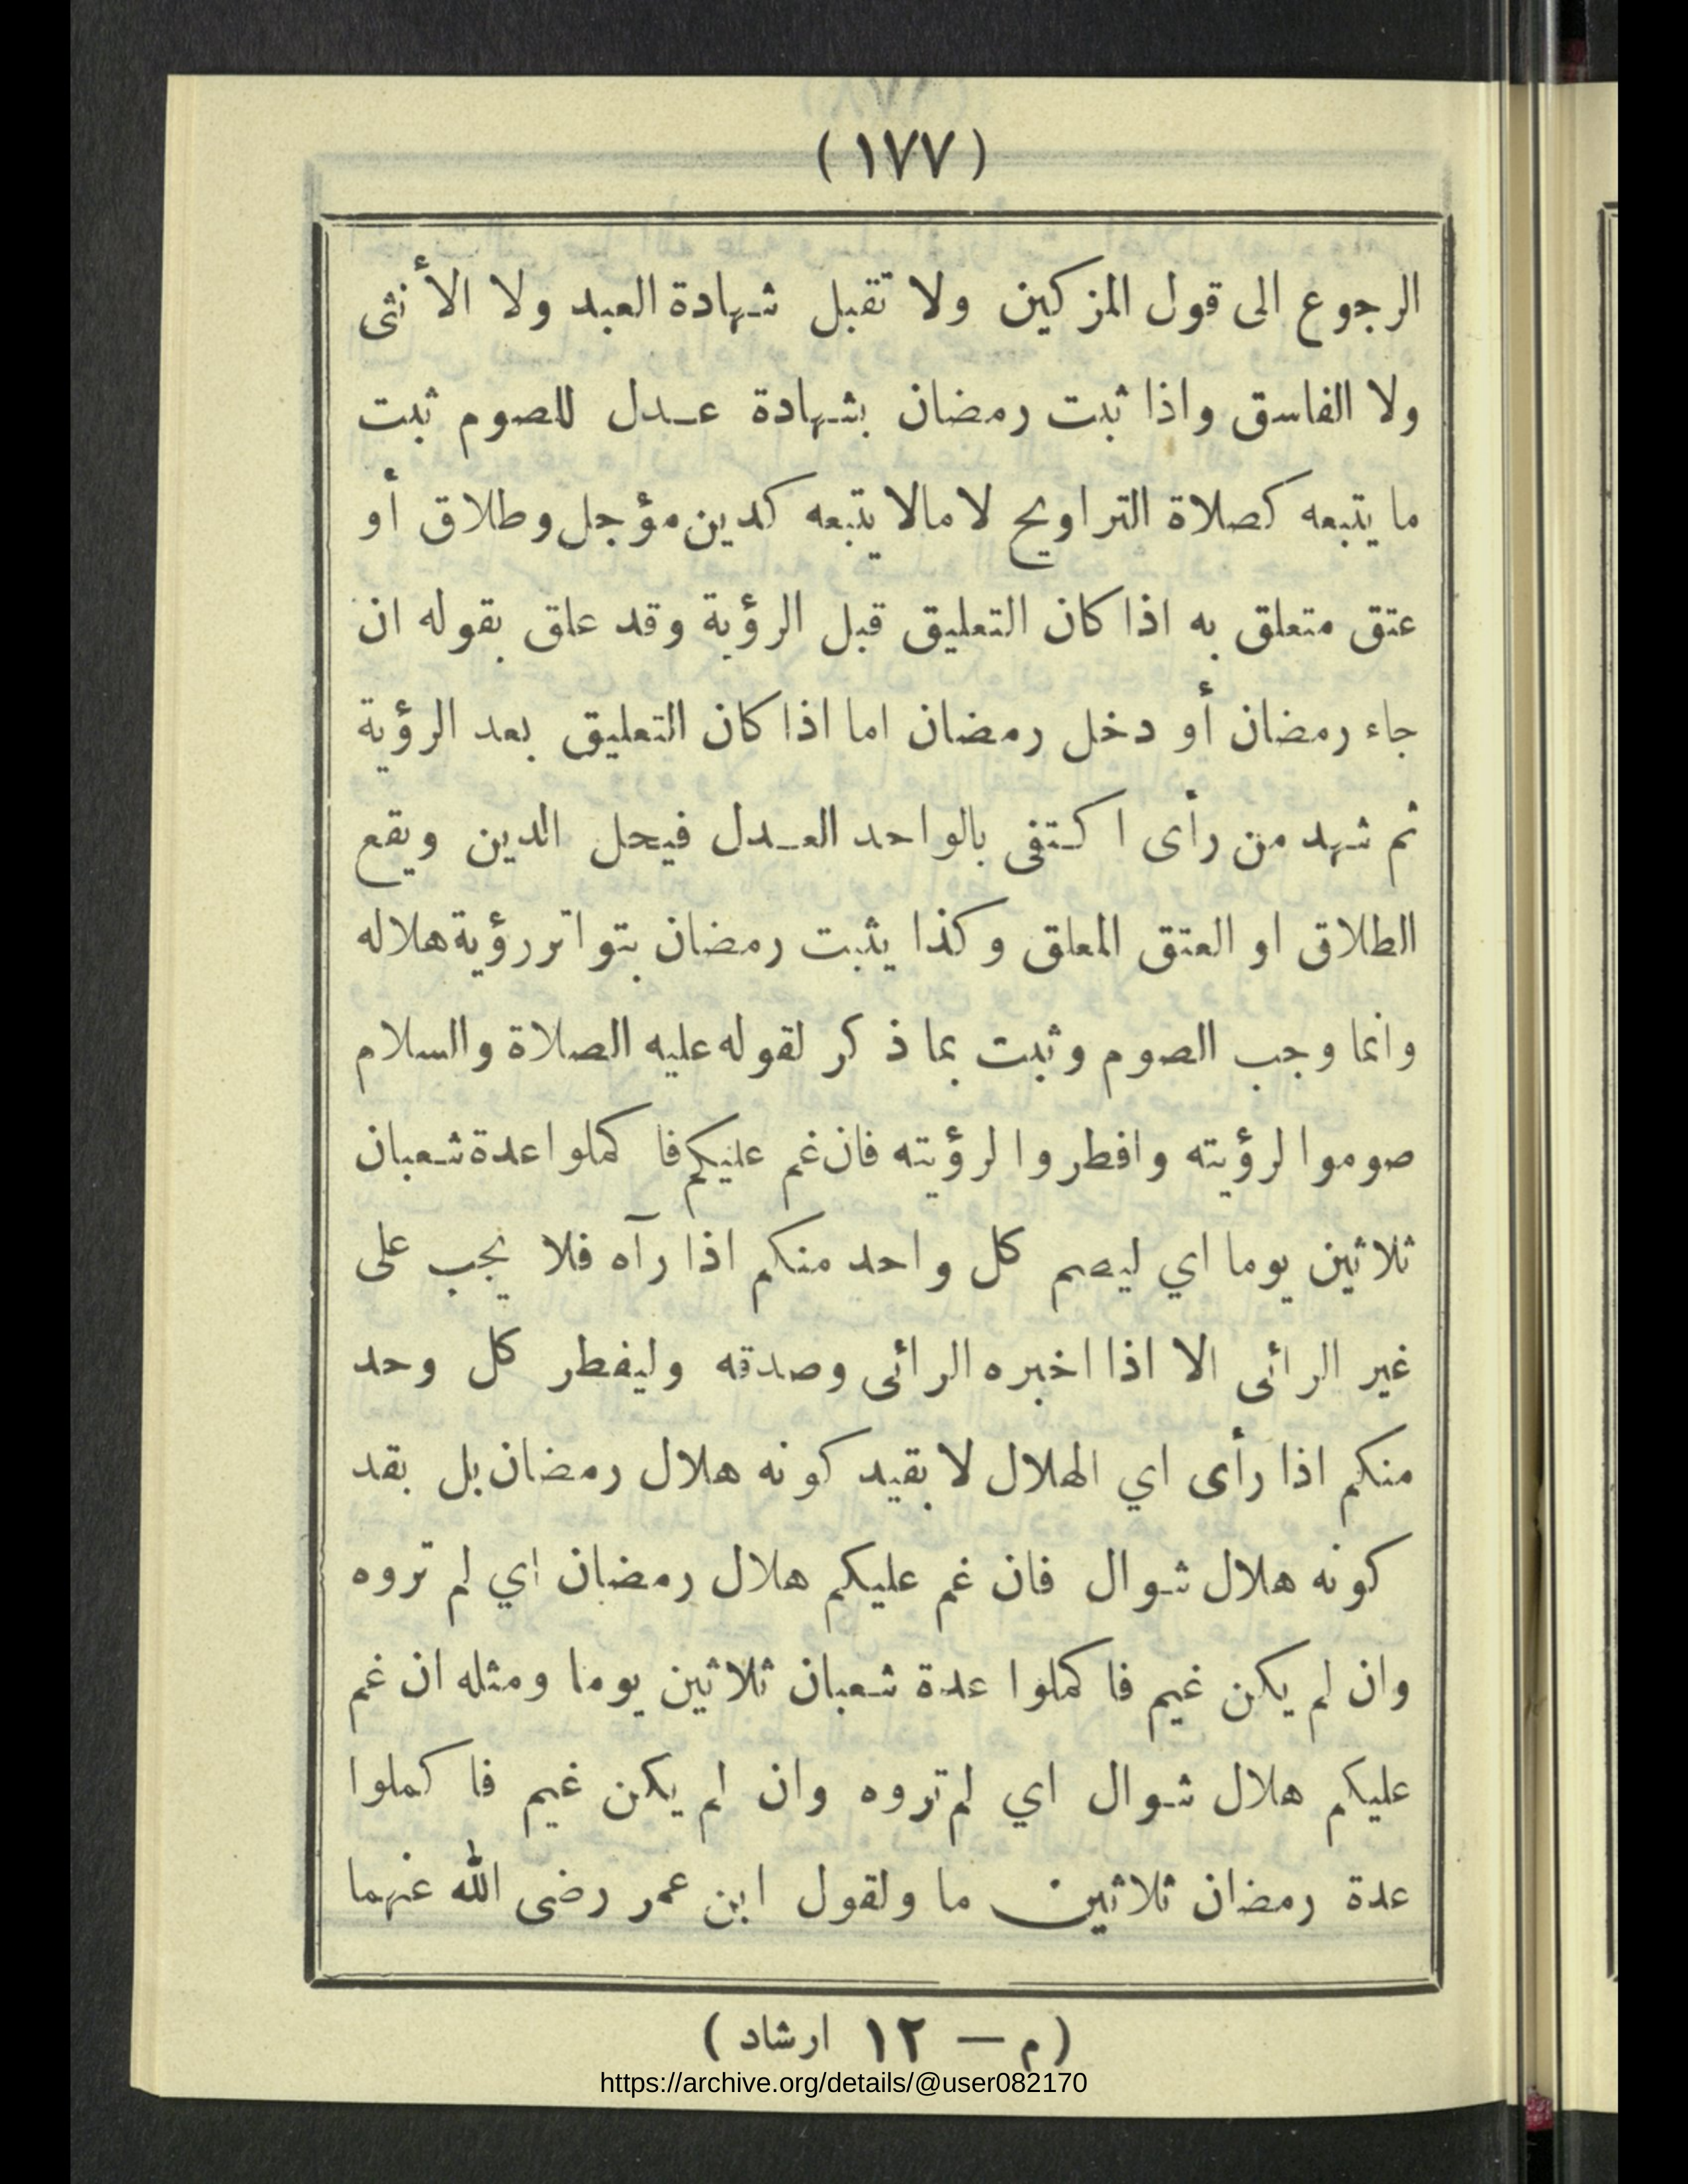 (١٧٧)
الرجوع الى قول المزكين ولا تقبل شهادة العبد ولا الأنثى
ولا الفاسق واذا ثبت رمضان بشهادة عـدل للصوم ثبت
ما يتبعه كصلاة التراويح لا مالا يتبعه كدين مؤجل وطلاق أو
عتق متعلق به اذا كان التعليق قبل الرؤية وقد علق بقوله ان
جاء رمضان أو دخل رمضان اما اذا كان التعليق بعد الرؤية
ثم شهد من رأى اكتفى بالواحد العـدل فيحل الدين ويقع
الطلاق او العتق المعلق وكذا يثبت رمضان بتواتر رؤية هلاله
وانما وجب الصوم وثبت بما ذكر لقوله عليه الصلاة والسلام
صوموا لرؤيته وافطروا لرؤيته فان غم عليكم فاكملوا عدة شعبان
ثلاثين يوما اي ليصم كل واحد منكم اذا رآه فلا يجب على
غير الرائى الا اذا اخبره الرائى وصدقه وليفطر كل وحد
منكم اذا رأى اي الهلال لا بقيد كونه هلال رمضان بل بقد
كونه هلال شوال فان غم عليكم هلال رمضان اي لم تروه
وان لم يكن غيم فاكملوا عدة شعبان ثلاثين يوما ومثله ان غم
عليكم هلال شوال اي لم تروه وان لم يكن غيم فاكملوا
عدة رمضان ثلاثين ما ولقول ابن عمر رضى الله عنهما
(م — ١٢ ارشاد)
https://archive.org/details/@user082170